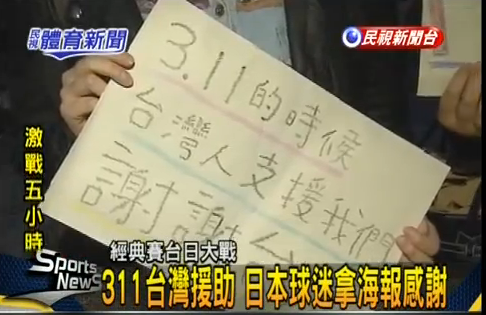 民視 體育新聞
民視新聞台
3.11的時候
台灣人支援我們
謝謝台
激戰五小時
經典賽台日大戰
Sports
News
311台灣援助 日本球迷拿海報感謝